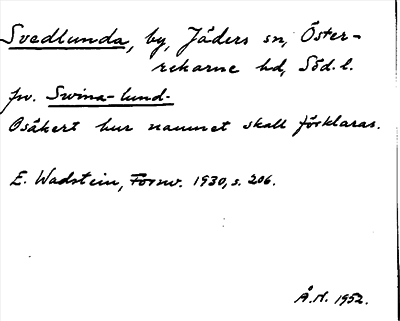 Svedlunda, by, Jäders sn, Öster-
rekarne hd, Söd. l.
fv. Swina-lund-
Osäkert hur namnet skall förklaras.
E. Wadstein, Fornv. 1930, s. 206.
Å.N. 1952.